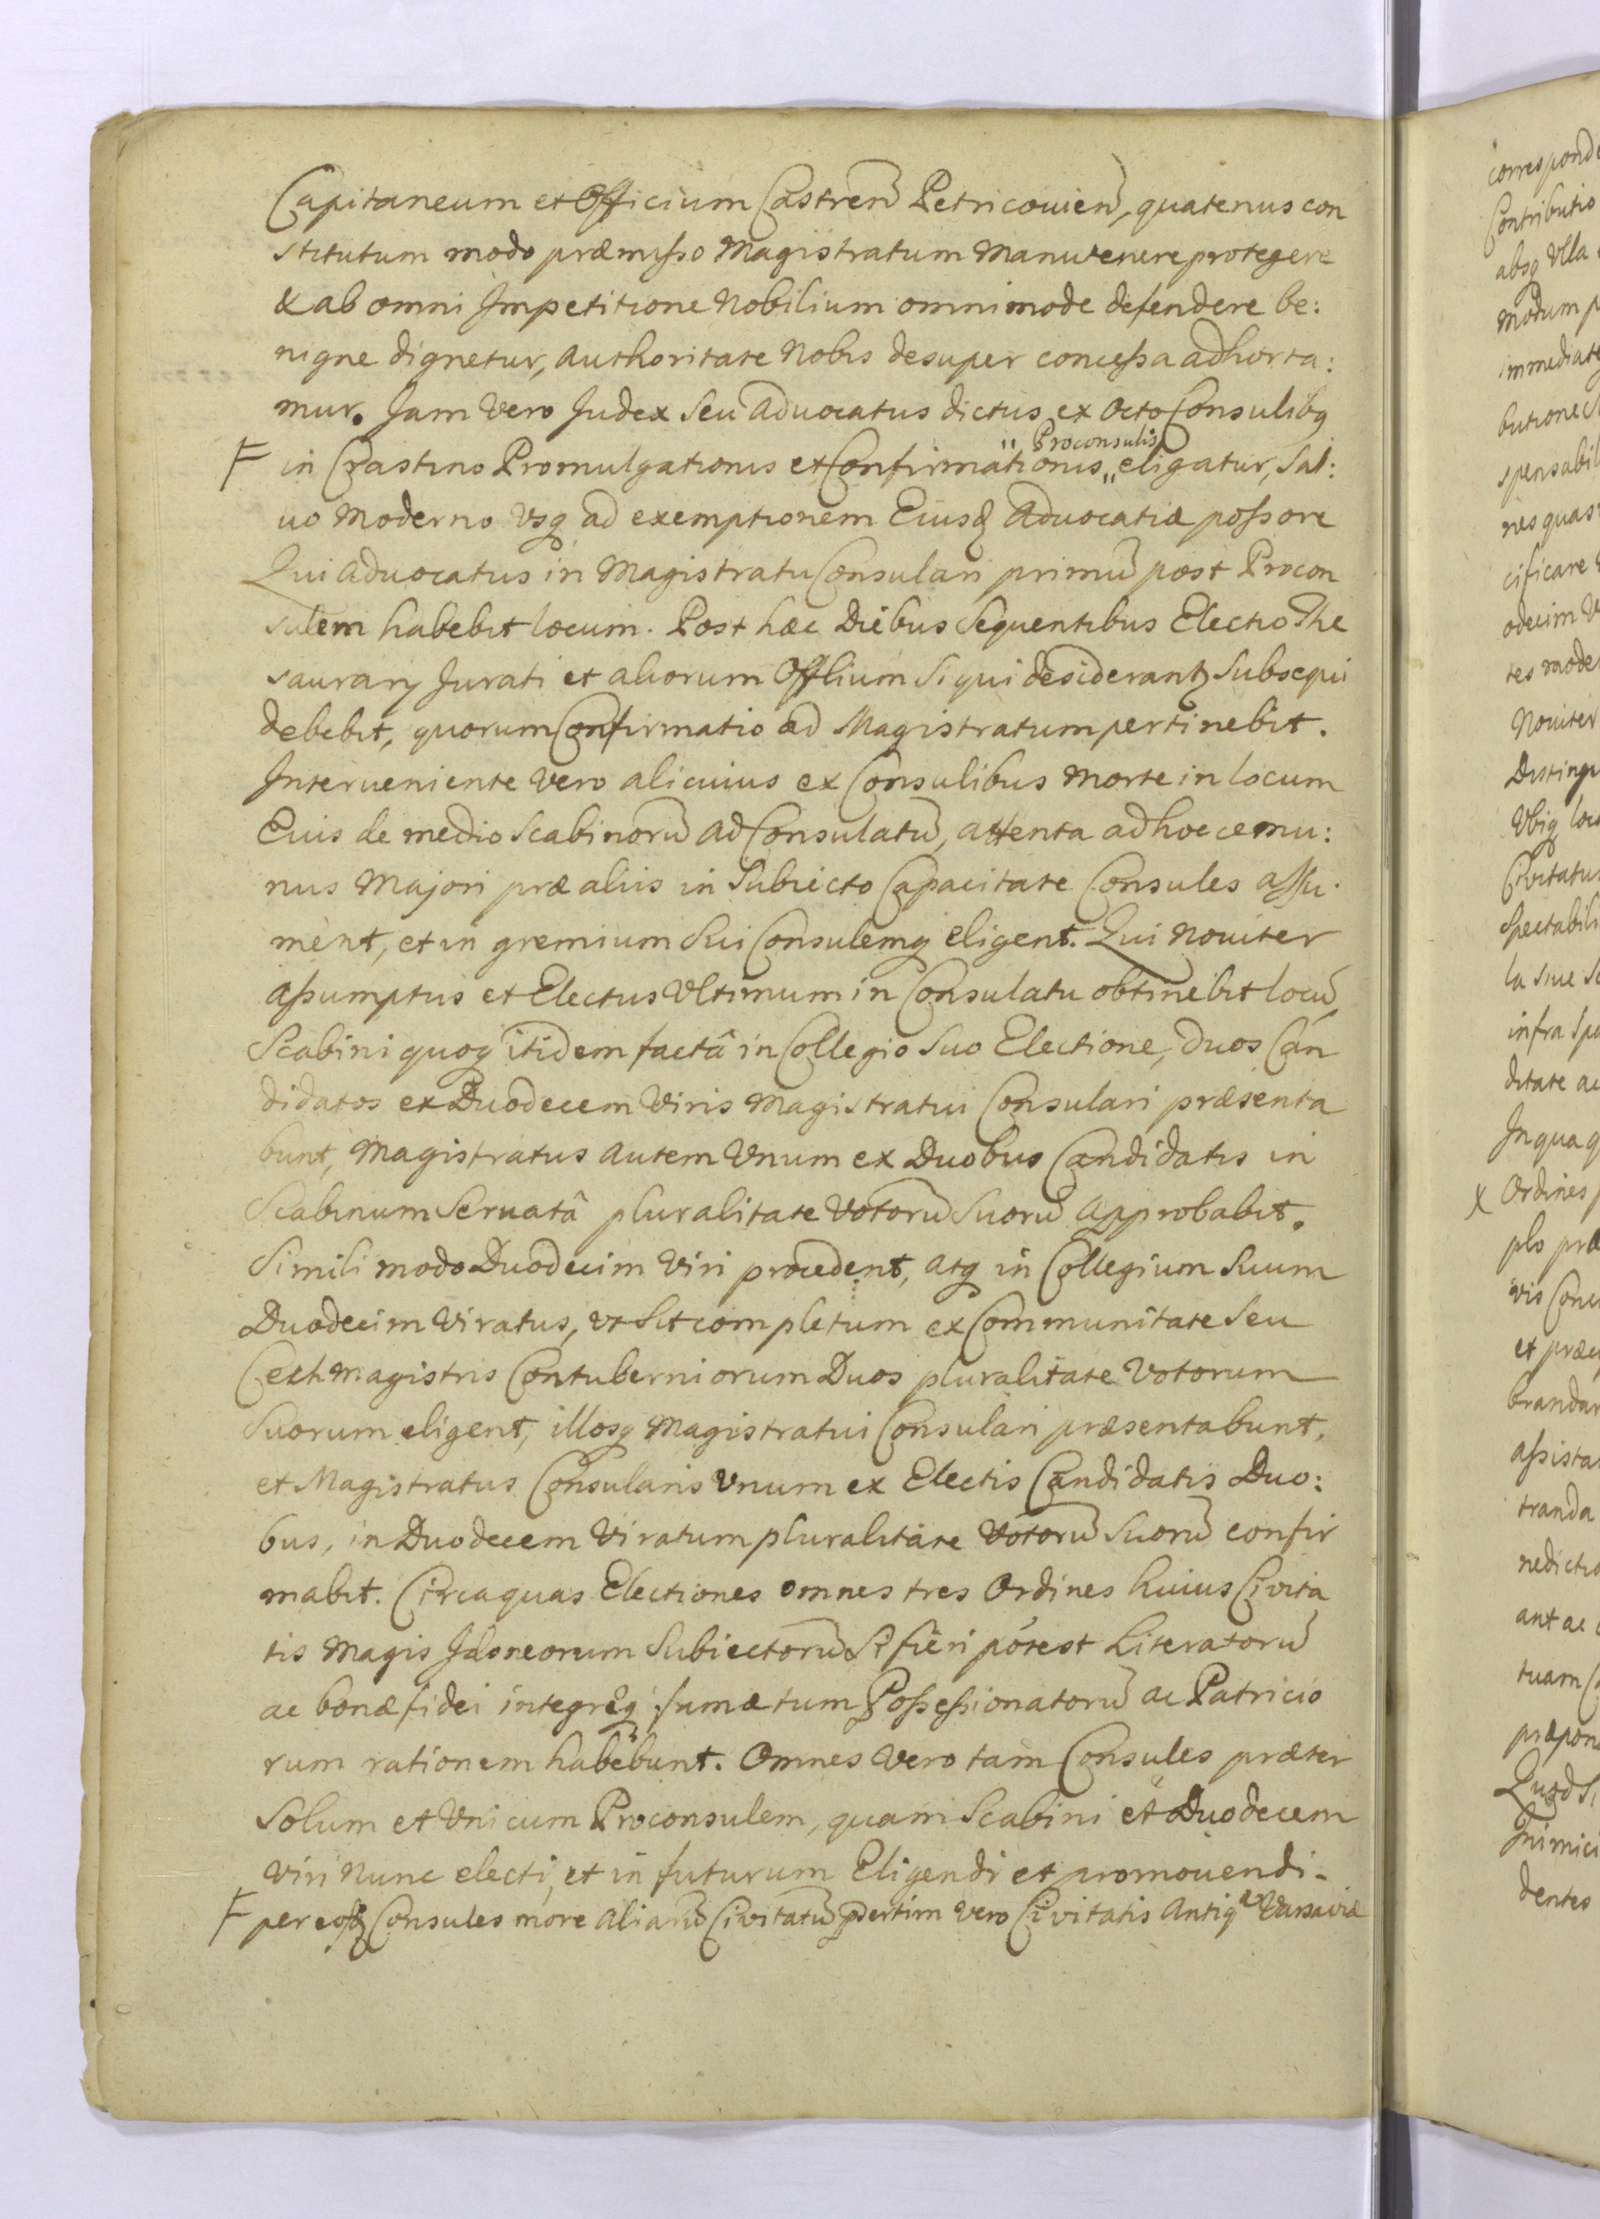 Capitaneum et Officium Castren̄ Petricouien̄, quatenus con
stitutum modo præmisso Magistratum manutenere protegere
& ab omni Impetitione Nobilium omnimode defendere be:
nigne dignetur, Authoritate Nobis desuper concessa adhorta:
mur. Jam Vero Judex Seu Aduocatus dictus ex Octo Consulibq
in Crastino Promulgationis et Confirmationis „ Proconsulis „ eligatur, Sal:
uo Moderno Vsq ad exemptionem Eiusd Aduocatiæ possore
Qui Aduocatus in Magistratu Consulari primū post Procon
sulem habebit locum. Post hæc Diebus Sequentibus Electio The
saurarij Jurati et aliorum Offlium Si qui desiderantr Subsequi
debebit, quorum Confirmatio ad Magistratum pertinebit.
Interueniente Vero alicuius ex Consulibus Morte in locum
Euis de medio Scabinorū Ad Consulatū, attenta ad hocce mu:
nus Majori præ aliis in Subiecto Capacitate Consules assu.
ment, et in gremium Sui Consulemq eligent. Qui Nouiter
assumptus et Electus Vltimum in Consulatu obtinebit locū,
Scabini quoq itidem factâ in Collegio Suo Electione, duos Can
didatos ex Duodecem Viris Magistratui Consulari præsenta
bunt, Magistratus Autem Vnum ex Duobus Candidatis in
Scabinum Seruatâ pluralitate Votorū Suorū Approbabit.
Simili modo Duodecim Viri procedent, atq in Collegium Suum
Duodecim Viratus, vt Sit completum ex Communitate Seu
Cechmagistris Contuberniorum Duos pluralitate Votorum
Suorum eligent, illosq Magistratui Consulari præsentabunt,
et Magistratus Consularis Vnum ex Electis Candidatis Duo:
bus, in Duodecem Viratum pluralitate Votorū Suorū confir
mabit. Circa quas Electiones omnes tres Ordines huius Ciuita
tis Magis Idoneorum Subiectorū Si fieri potest Literatorū
ac bonæ fidei integręq famæ tum Possessionatorū ac Patricio
rum rationem habebunt. Omnes Vero tam Consules præter
Solum et Vnicum Proconsulem, quam Scabini et Duodecem
Viri Nunc electi, et in futurum Eligendi et promouendi.
per eosd Consules more Aliarū Ciuitatū psertim Vero Ciuitatis Antiqæ Varsauiæ
corresponde
Contributio
absq Vlla
Modum p
immediate
butione S
spensabil
nes quas
cificare
odecim V
tes mode
Nouiter
Disting
Vbiq loc
Civitatu
Spectabil
la Siue S
infra Spe
ditate ac
In qua q
X Ordines p
plo præ
vis Conc
et præ
brandar
assista
tranda
nedictio
ant ac
tuam C
præpon
Quod Si
Inimici
dentes